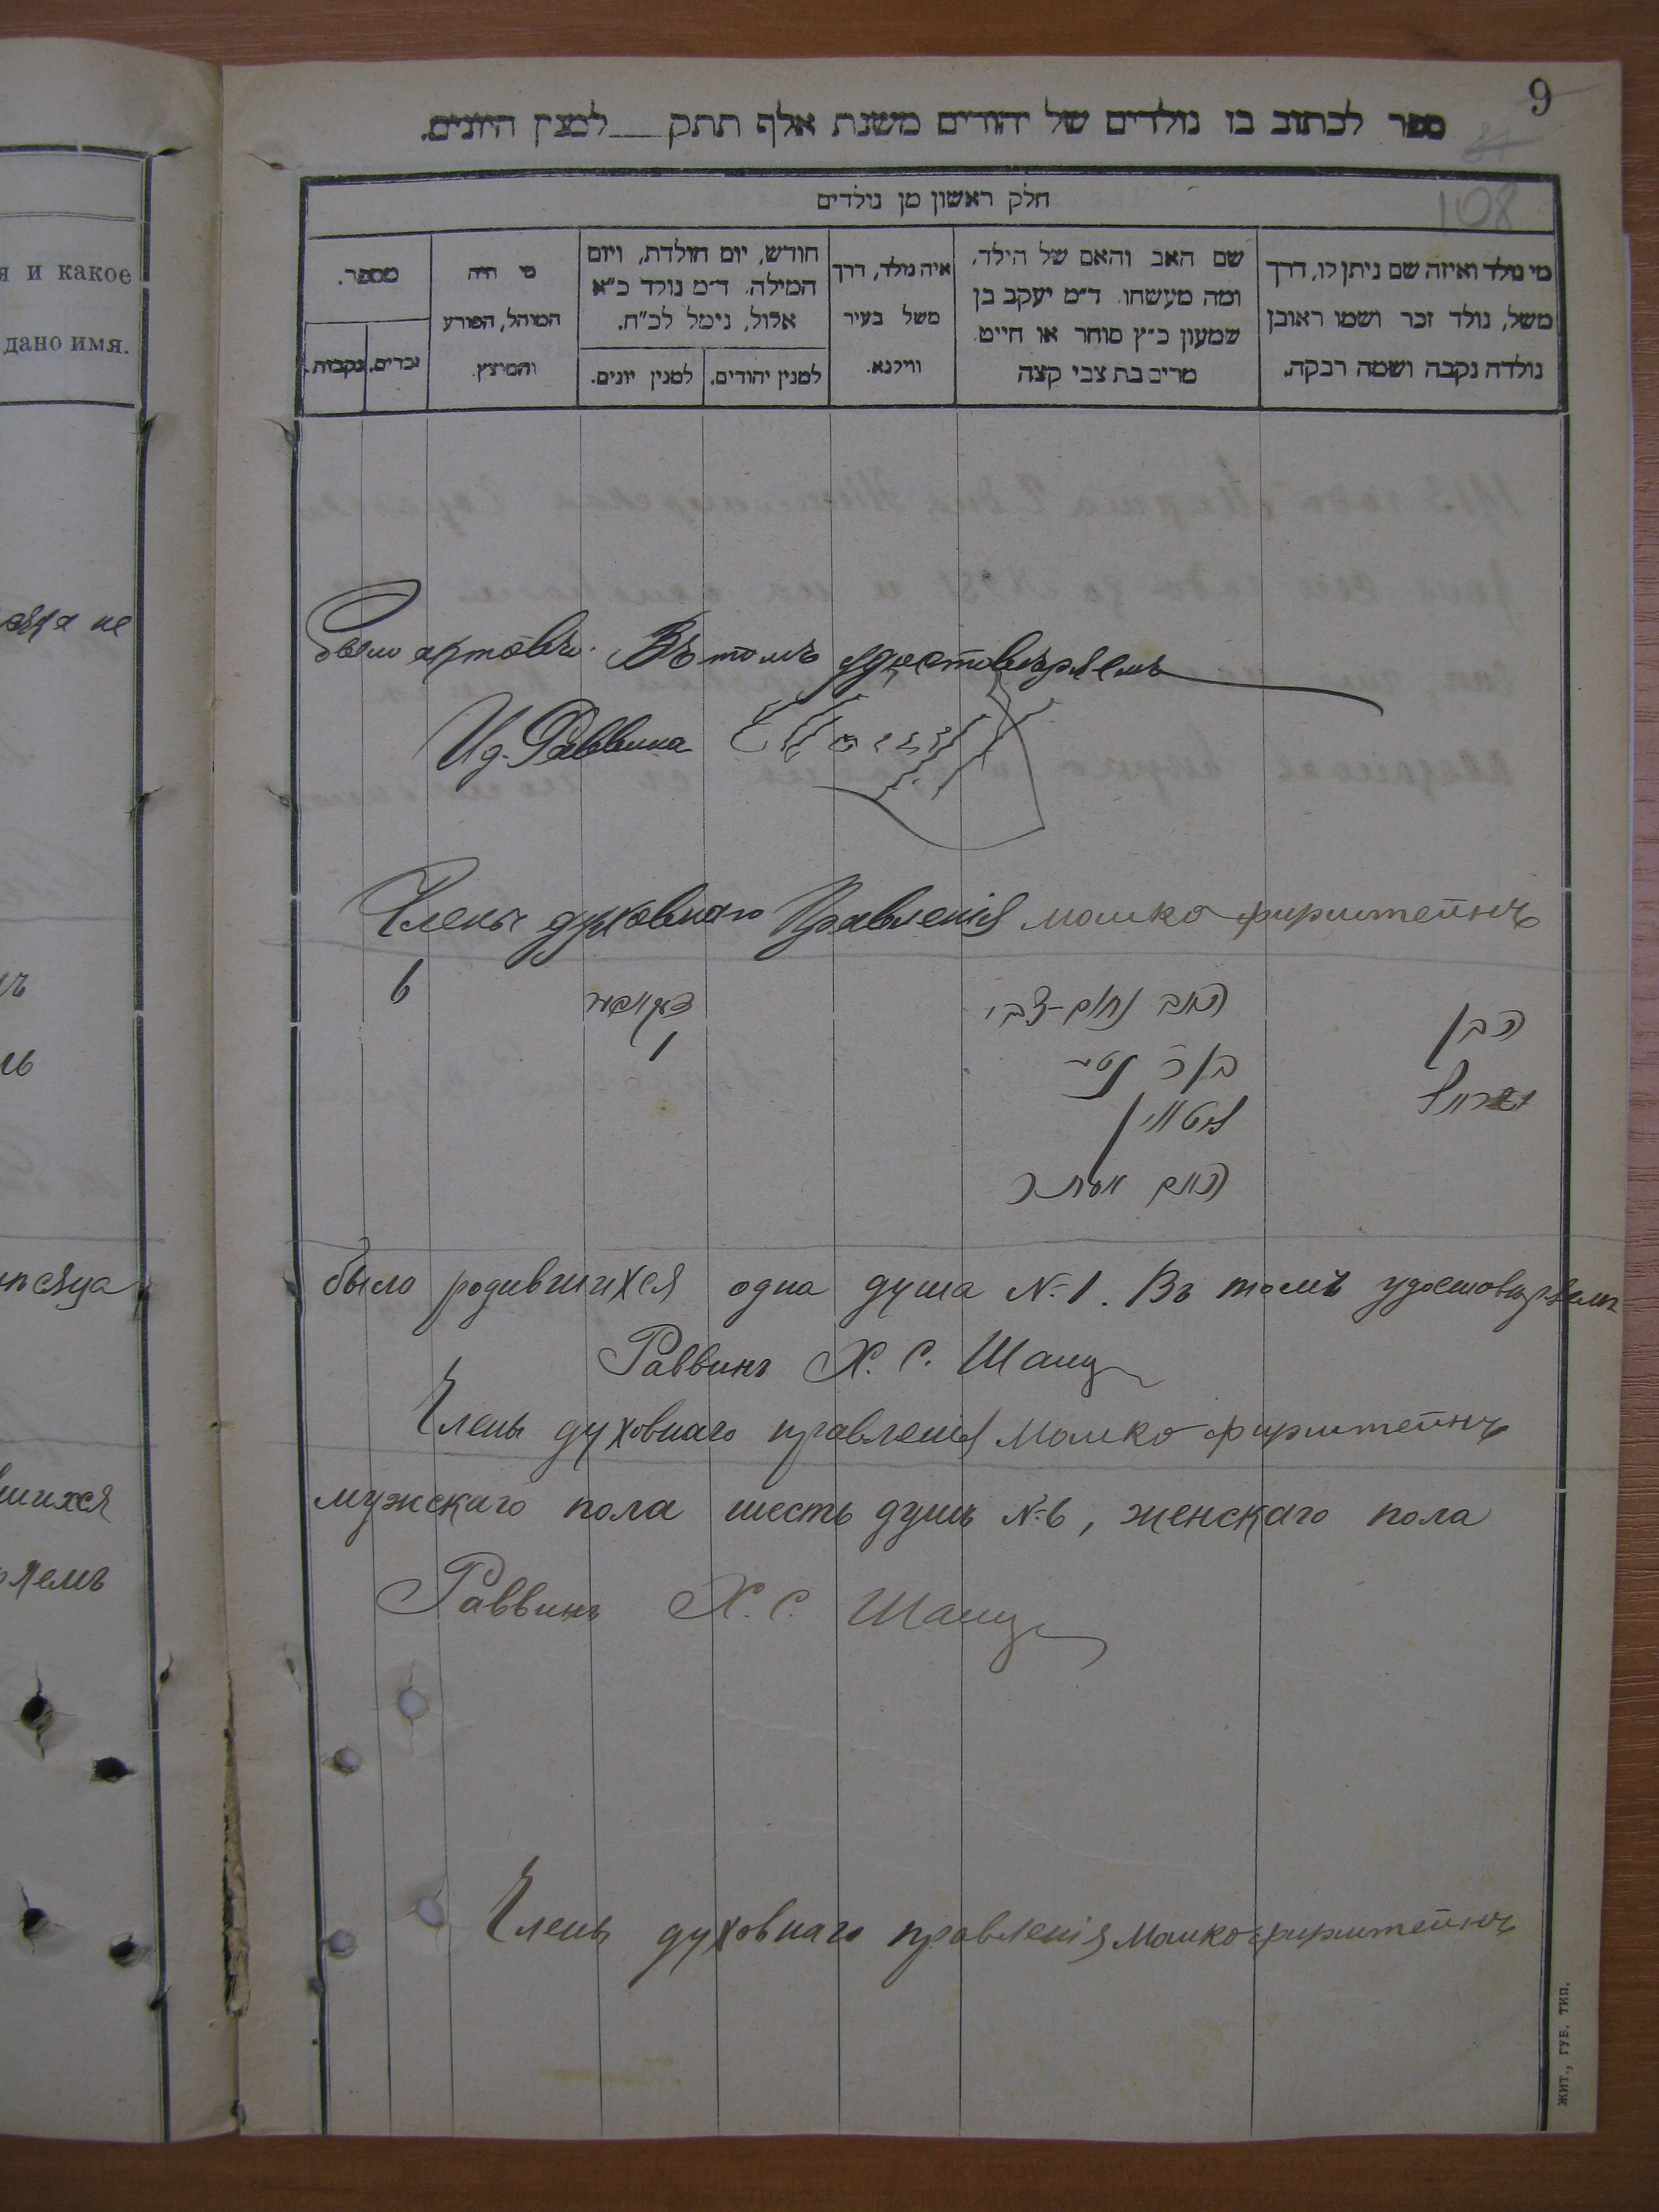 9
ספר לכתוב בו נולדים של יהודים משנת אלף תתק___למנין היונים.
108
חלק ראשון מן נולדים
מי נולד ואיזה שם ניתן לו, דרך
משל, נולד זכר ושמו ראובן
נולדה נקבה ושמה רבקה.
שם האב והאם של הילד,
ומה מעשהו. ד״מ יעקב בן
שמעון כ״ץ סוחר או חייט
מרים בת צבי קצה
איה נולד, דרך
משל בעיר
ווילנא.
חודש, יום הולדת, ויום
המילה. ד״מ נולד כ״א
אלול, נימל לכ״ח.
למנין יהודים.
למנין יונים.
מי היה
המוהל, הפורע
והמוצץ.
מספר.
זכרים.
נקבות.
я и какое
дано имя.
не
было актовъ. Въ томъ удостовѣряемъ
И д. Раввина
Члены духовнаго Правленія Мошко Фирштейнъ
6
1
הבן
האב נחום-צבי
האם
было родившихся одна душа №1. Въ томъ удостовѣряемъ
Раввинъ Х. С. Шанц
Члены духовнаго правленія Мошко Фирштейнъ
вшихся
мужскаго пола шесть душъ №6, женскаго пола
ряемъ
Раввинъ Х. С. Шанц
Члены духовнаго правленія Мошко Фирштейнъ
ЖИТ., ГУБ. ТИП.